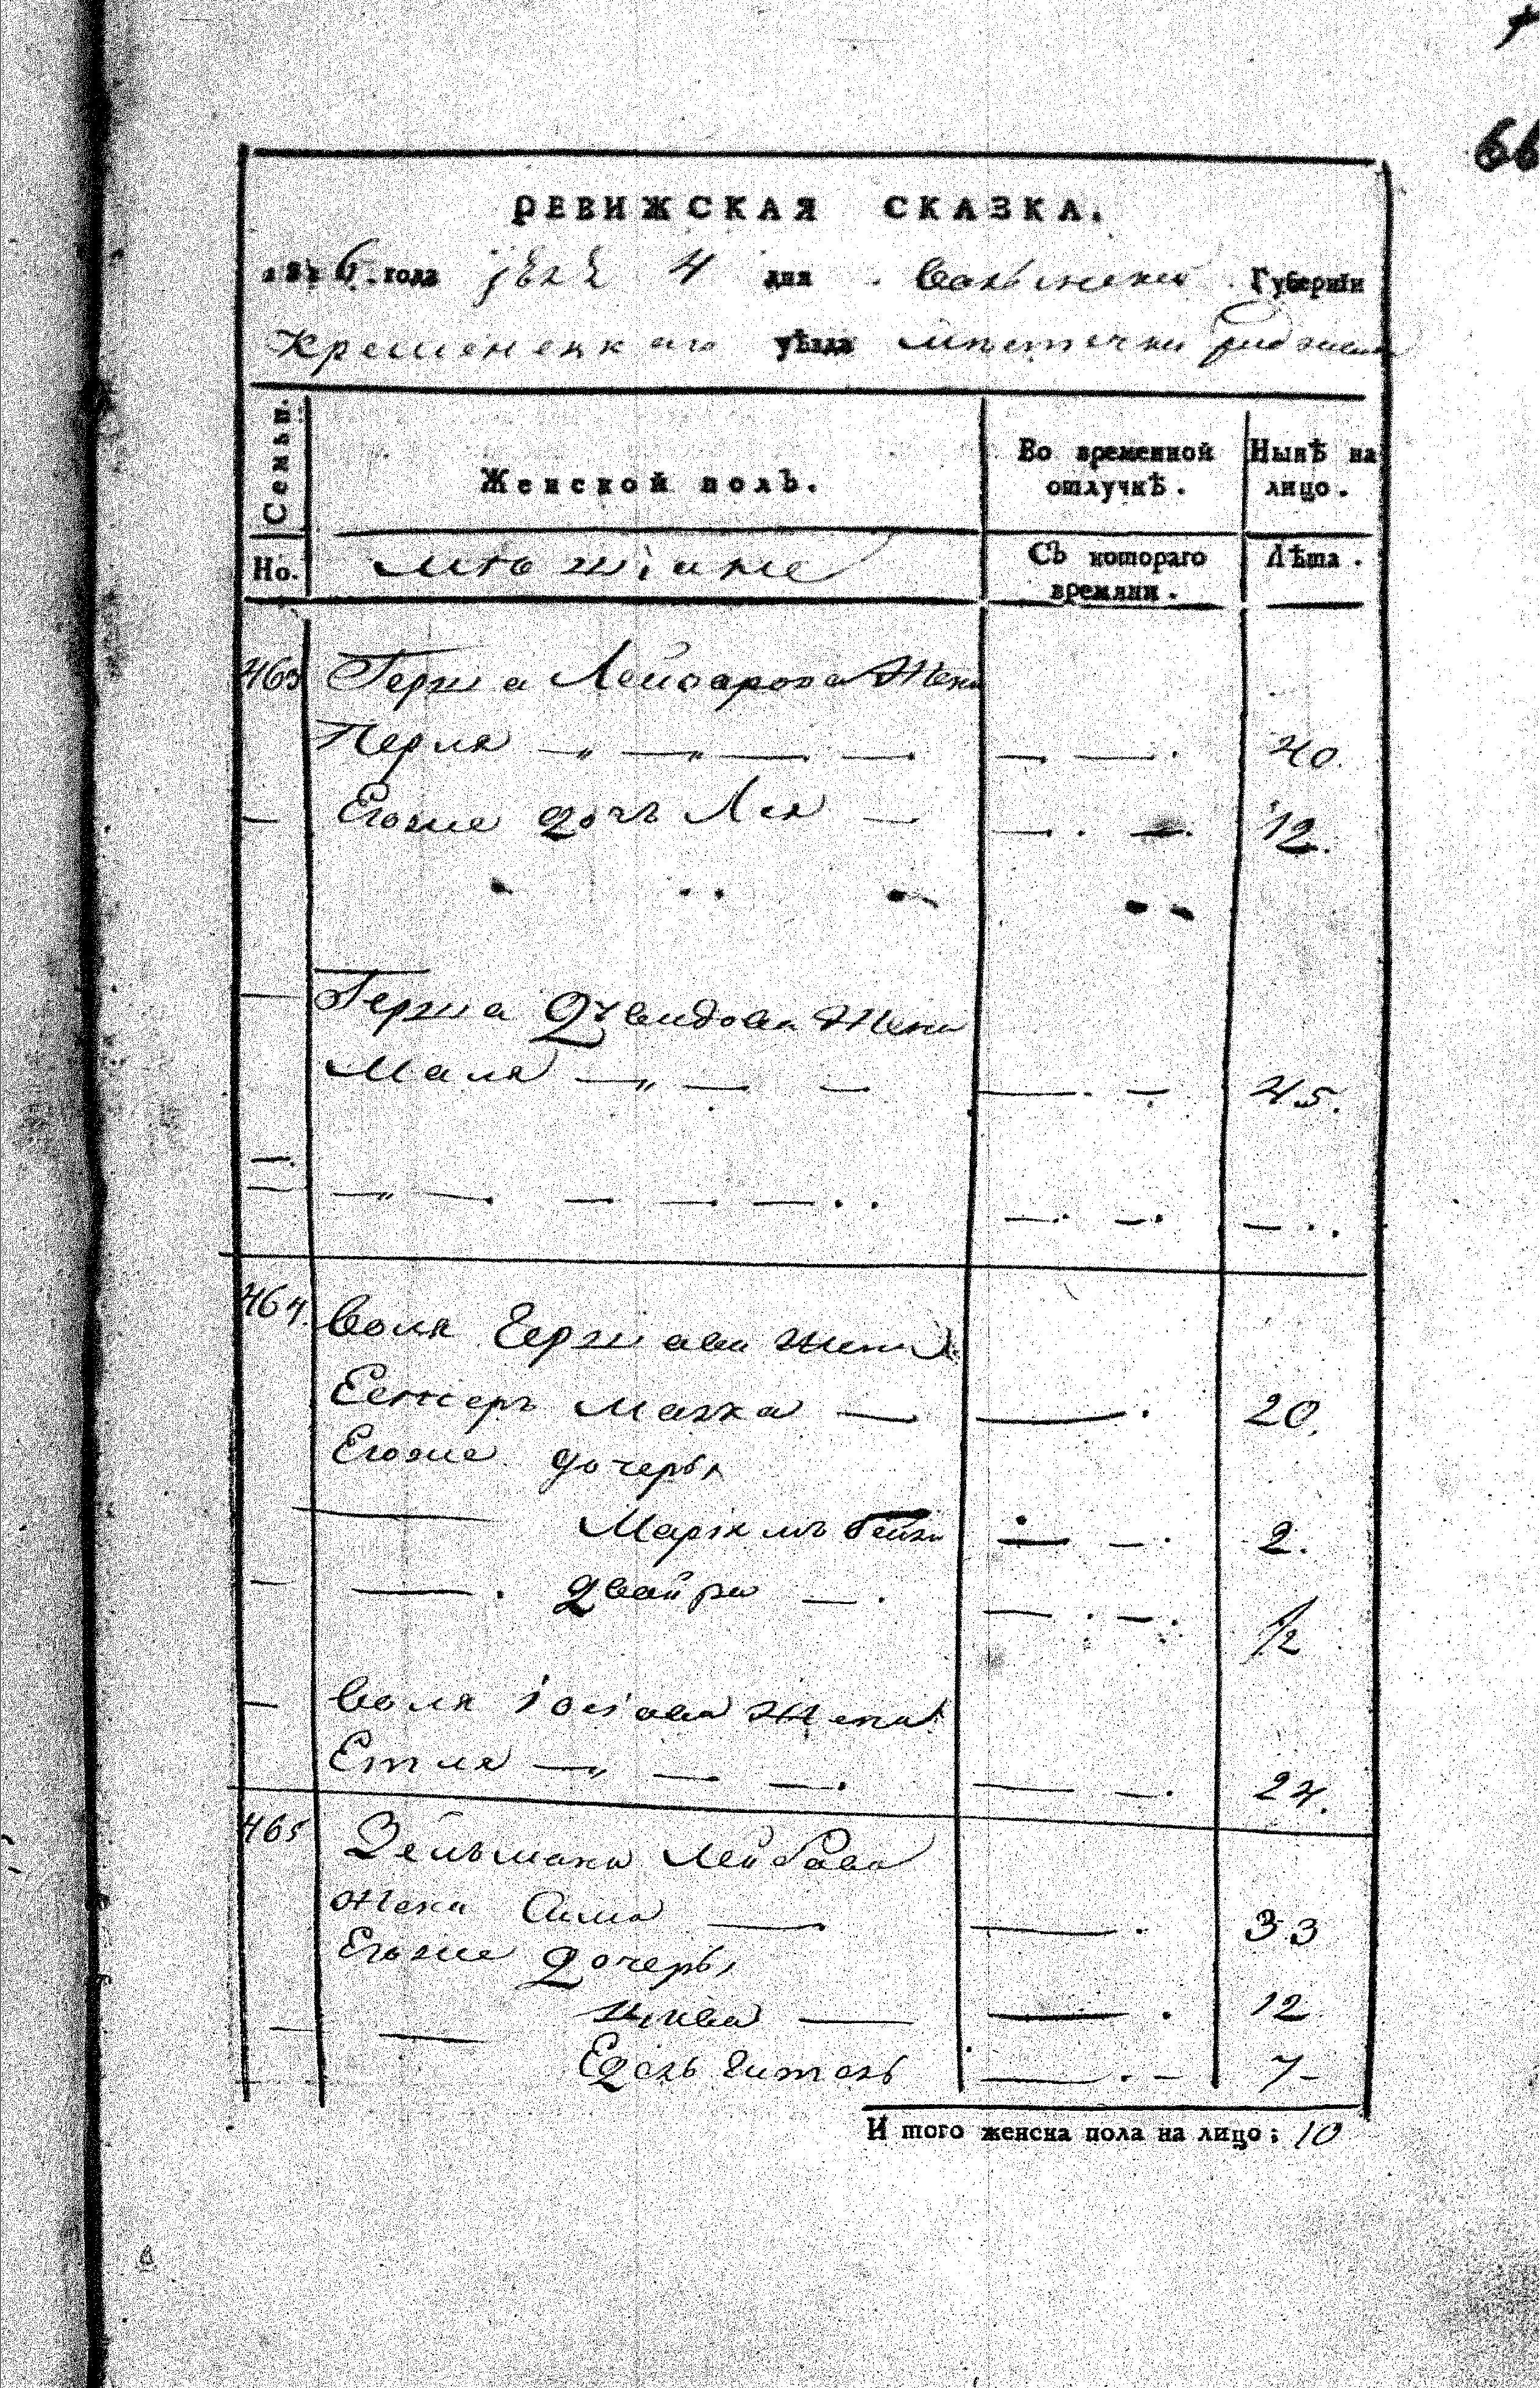 РЕВИЖСКАЯ СКАЗКА.
1816. года 4 дня Волынской Губерніи
Кременецкаго уѣзда мѣстечка
Семьи. Женской полъ. Во временной отлучкѣ. Нынѣ на лицо.
Но. Съ котораго времяни. Лѣта.
463 Герша Жена
Перля — „ — „ — . — . — . — . 40.
— Егоже дочь Лея — — . — . 12.
— Герша Жена
Маля — „ — — — . — . 45.
464. Воля Гершова жена
Естеръ Малка — — . 20.
Егоже дочеры
Маріямъ Бейла — — . 2.
— — . Двайра — . — . — . 1/2
— Воля Іосіова Жена
Етля — „ — — . — — . 24.
465 Зельмана Лейбова
Жена Сима — — . 33
Егоже Дочеры
— — Цива — — . 12
Едель Гитель — . — 7 -
И того женска пола на лицо: 10